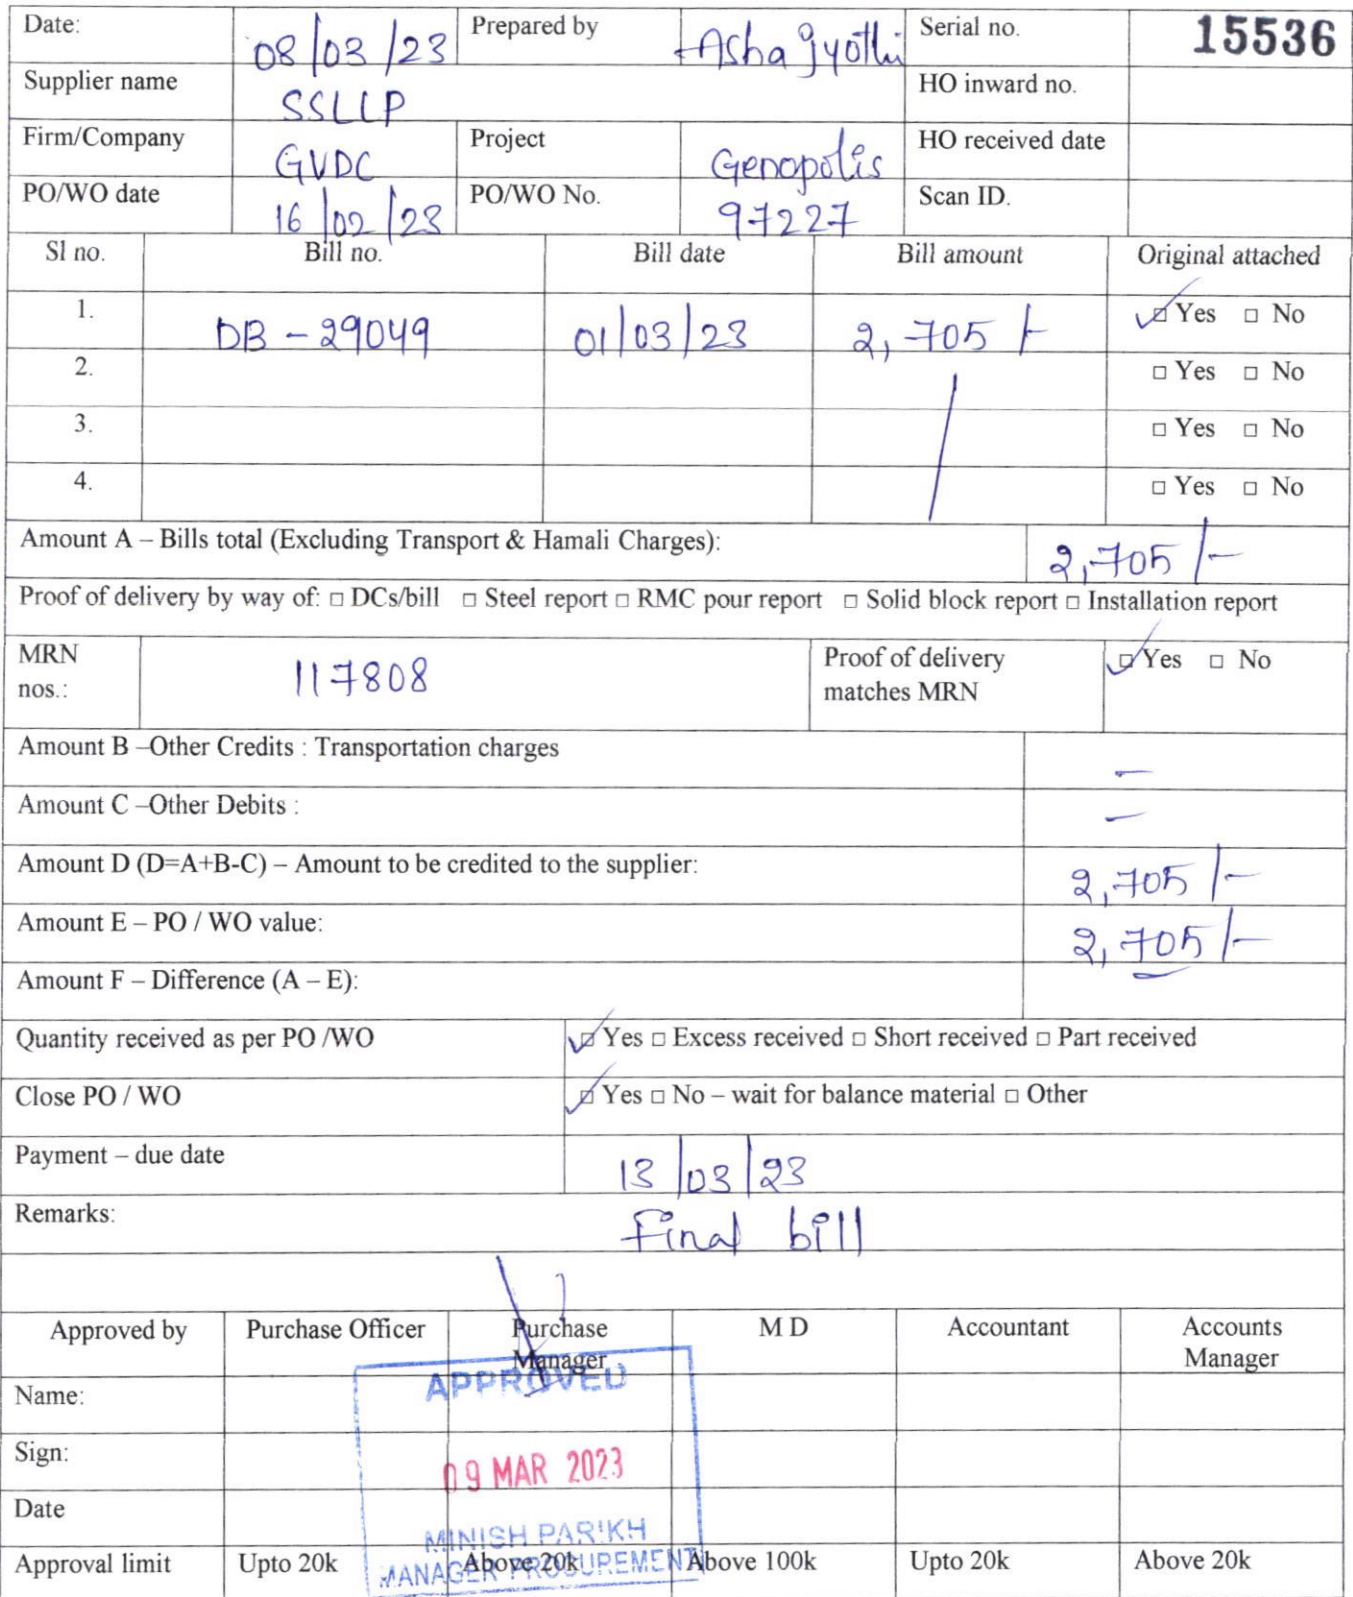 Date: 08/03/23 Prepared by Asha Jyothi Serial no. 15536
Supplier name SSLLP HO inward no.
Firm/Company GVDC Project Genopolis HO received date
PO/WO date 16/02/23 PO/WO No. 97227 Scan ID.
Sl no. Bill no. Bill date Bill amount Original attached
1. DB - 29049 01/03/23 2,705/- ☑ Yes □ No
2. □ Yes □ No
3. □ Yes □ No
4. □ Yes □ No
Amount A – Bills total (Excluding Transport & Hamali Charges): 2,705/-
Proof of delivery by way of: □ DCs/bill □ Steel report □ RMC pour report □ Solid block report □ Installation report
MRN nos.: 117808 Proof of delivery matches MRN ☑ Yes □ No
Amount B –Other Credits : Transportation charges –
Amount C –Other Debits : –
Amount D (D=A+B-C) – Amount to be credited to the supplier: 2,705/-
Amount E – PO / WO value: 2,705/-
Amount F – Difference (A – E):
Quantity received as per PO /WO ☑ Yes □ Excess received □ Short received □ Part received
Close PO / WO ☑ Yes □ No – wait for balance material □ Other
Payment – due date 13/03/23
Remarks: Final bill
Approved by Purchase Officer Purchase Manager M D Accountant Accounts Manager
APPROVED
Name:
Sign:
09 MAR 2023
Date
MINISH PARIKH
MANAGER PROCUREMENT
Approval limit Upto 20k Above 20k Above 100k Upto 20k Above 20k